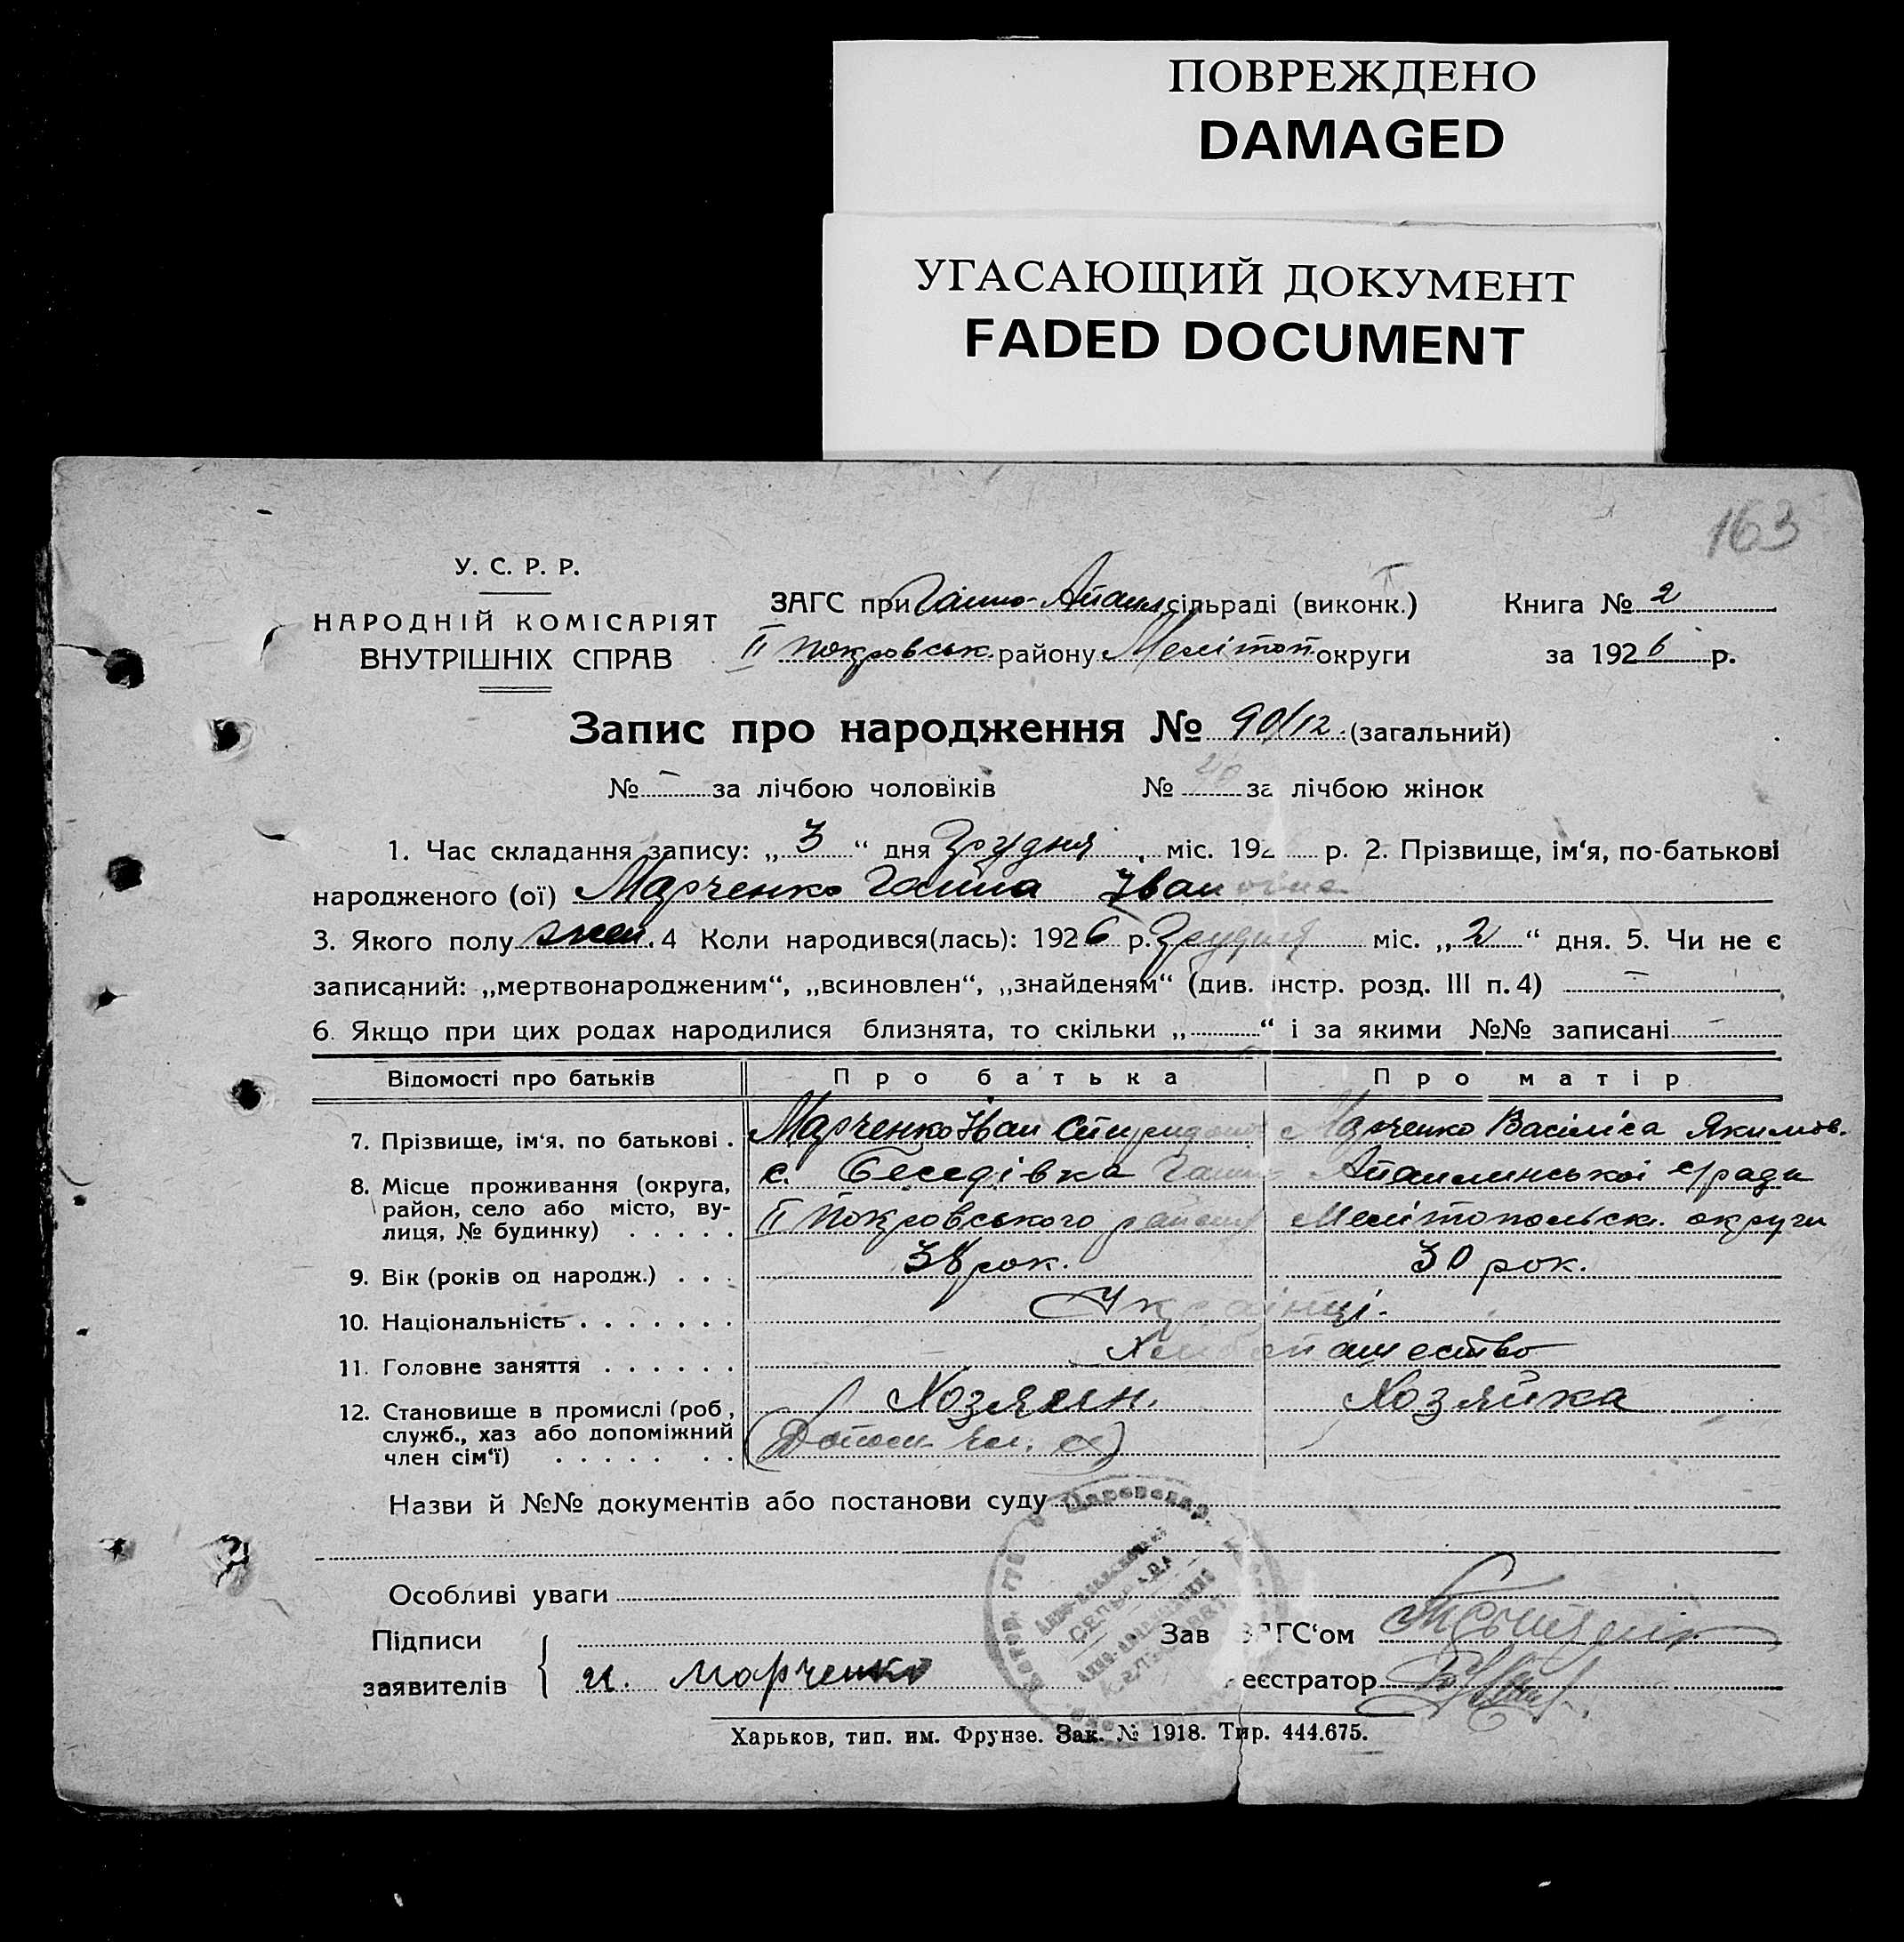 ПОВРЕЖДЕНО
DAMAGED
УГАСАЮЩИЙ ДОКУМЕНТ
FADED DOCUMENT
163
У. С. Р. Р.
НАРОДНІЙ КОМІСАРІЯТ
ВНУТРІШНІХ СПРАВ
ЗАГС при Ганно- сільраді (виконк.)
II Покровськ. району Мелітоп округи
Книга № 2
за 1926 р.
Запис про народження № 90/12. (загальний)
№ - за лічбою чоловіків № 40 за лічбою жінок
1. Час складання запису: „ 3 “ дня Грудня міс. 192 р. 2. Прізвище, ім‘я, по-батькові
народженого (ої) Марченко Ганна Івановна
3. Якого полу жен. 4 Коли народився(лась): 1926 р. Грудня міс. „ 2 “ дня. 5. Чи не є
записаний: „мертвонародженим“, „всиновлен“, „знайденям“ (див. інстр. розд. III п. 4) -
6. Якщо при цих родах народилися близнята, то скільки „ “ і за якими №№ записані -
Відомості про батьків Про батька Про матір
7. Прізвище, ім‘я, по батькові . Марченко Іван Спиридоно Марченко Василіса Якимов.
8. Місце проживання (округа, район, село або місто, вулиця, № будинку) с. Беседівка Ганно сради
II Покровського району Мелітопольск. округи
9. Вік (років од народж.) . . . 38 рок. 30 рок.
10. Національність . . . . . . . Українці.
11. Головне заняття . . . . . . Хлебопашество
12. Становище в промислі (роб., служб., хаз або допоміжний член сім‘ї) . . . . . . . Хозяин. Хозяйка
Назви й №№ документів або постанови суду
Особливі уваги
Підписи
заявителів
и. Марченко
Зав ЗАГС‘ом
еєстратор
СЕЛЬРАДА
Харьков, тип. им. Фрунзе. Зак. № 1918. Тир. 444.675.